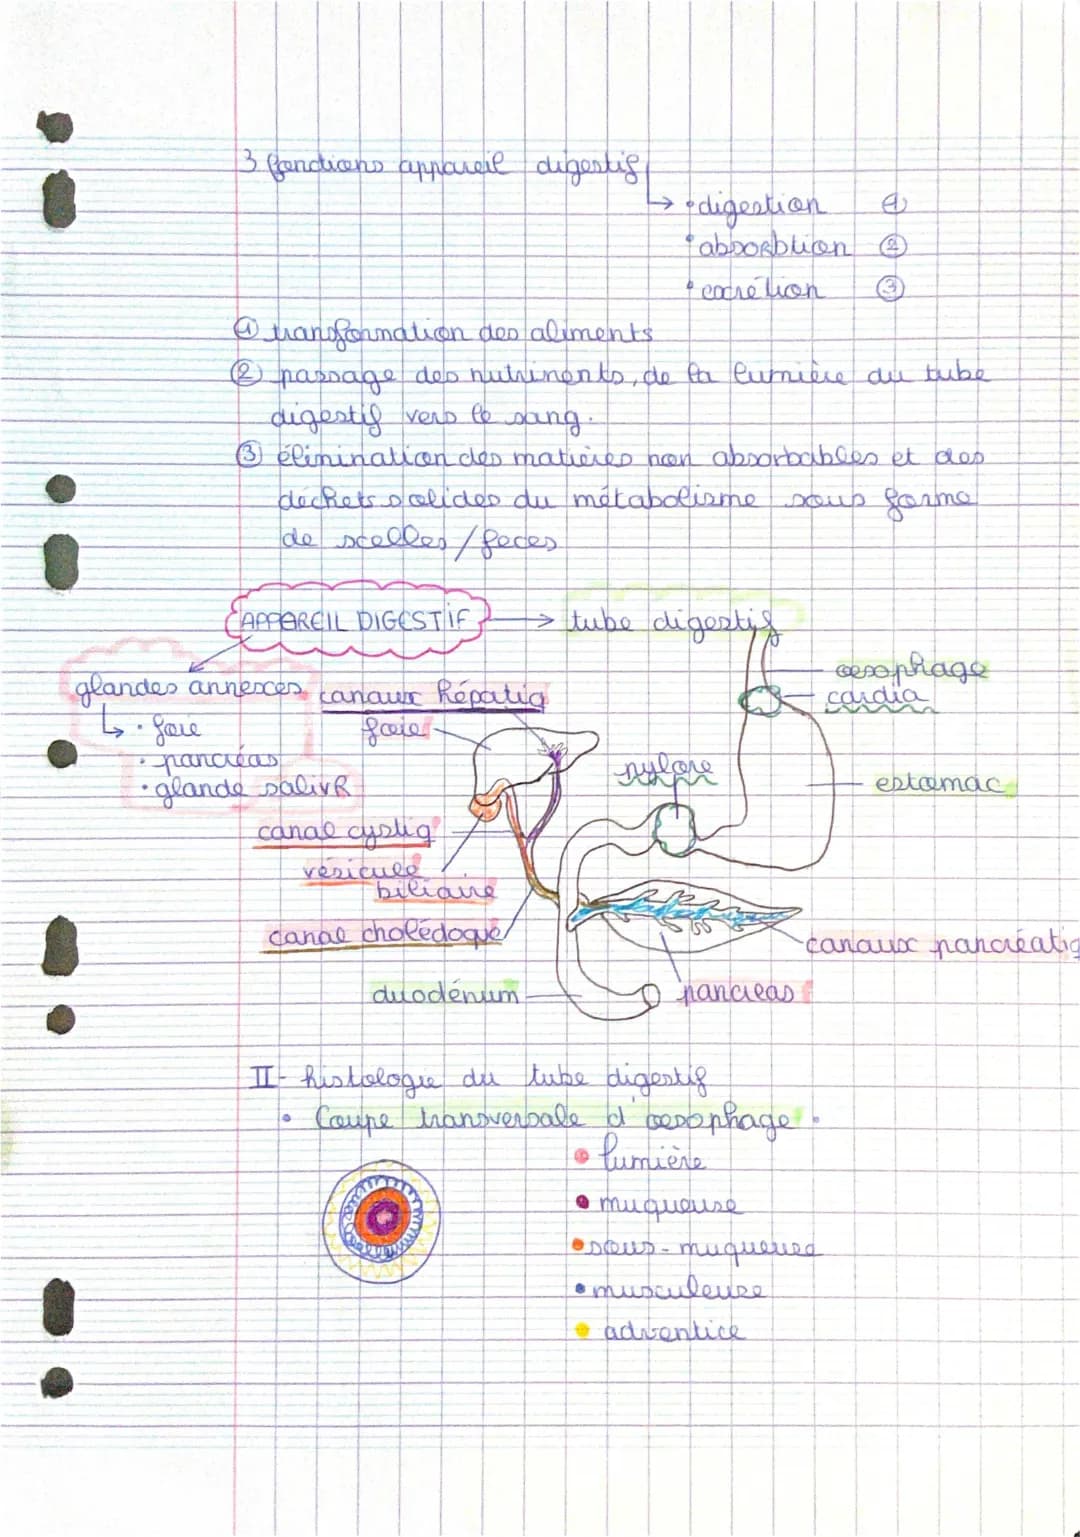 3 fonctions appareil digestif
↳ • digestion ①
• absorbtion ②
• excrétion ③
① transformation des aliments
② passage des nutriments, de la lumière du tube
digestif vers le sang.
③ élimination des matières non absorbables et des
déchets solides du métabolisme sous forme
de scelles / feces
APPAREIL DIGESTIF → tube digestif
glandes annexes
↳ • foie
• pancréas
• glande salivR
canaux hépatiq
foie
canal cystiq
vésicule
biliaire
canal cholédoque
duodénum
pylore
oesophage
cardia
estomac
canaux pancréatiq
pancreas
II- histologie du tube digestif
• Coupe transversale d'oesophage.
• lumière
• muqueuse
• sous-muqueuse
• musculeuse
• adventice